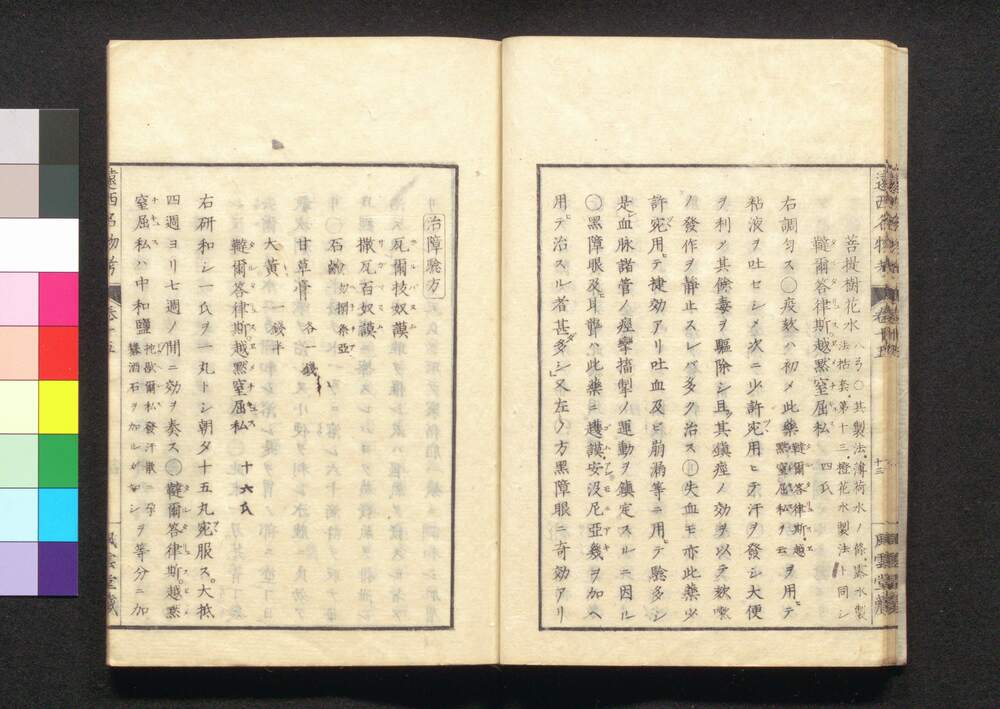 菩提樹花水 ハラ〇其製法薄荷水ノ條露水製法枯葵第十三橙花水製法ト同シ
韃爾荅律斯越黙窒屈私 四氏
右調勻ス〇疫欬ハ初メ此藥韃爾荅律斯越黙窒屈私ヲヲ用テ
粘液ヲ吐セシメ次ニ少許宛用ヒテ汗ヲ發シ大便
ヲ利メ其條毒ヲ驅除シ且其鎮痙ノ効ヲ以テ欬嗽
ノ發作ヲ靜止スレバ多ク治ス 失血モ亦此藥少
許宛用テ捷効アリ吐血及ヒ崩漏等ニ用テ驗多シ
是血脉諸管ノ痙攣搐掣ノ運動ヲ鎮定スルニ因ル
黒障眼及耳聾ハ此藥ニ護謨安没尼亞幾ヲ加ヘ
用テ治スル者甚多シ又左ノ方黒障眼ニ奇効アリ
遠西名物考 卷十五 十三 風雲堂藏
治障驗方
瓦爾抜奴謨
撒瓦百奴謨
石鹸 勿搦祭亞
甘草膏 各一錢
大黄 一錢半
韃爾荅律斯越黙窒屈私 十六氏
右研和シ一氏ヲ一丸トシ朝夕十五丸宛服ス大抵
四週ヨリ七週ノ間ニ効ヲ奏ス 韃爾荅律斯越黙
窒屈私ハ中和鹽 發汗散ニ孕礬酒石ヲ加ルガ如シヲ等分ニ加
遠西名物考 卷十五 風雲堂藏